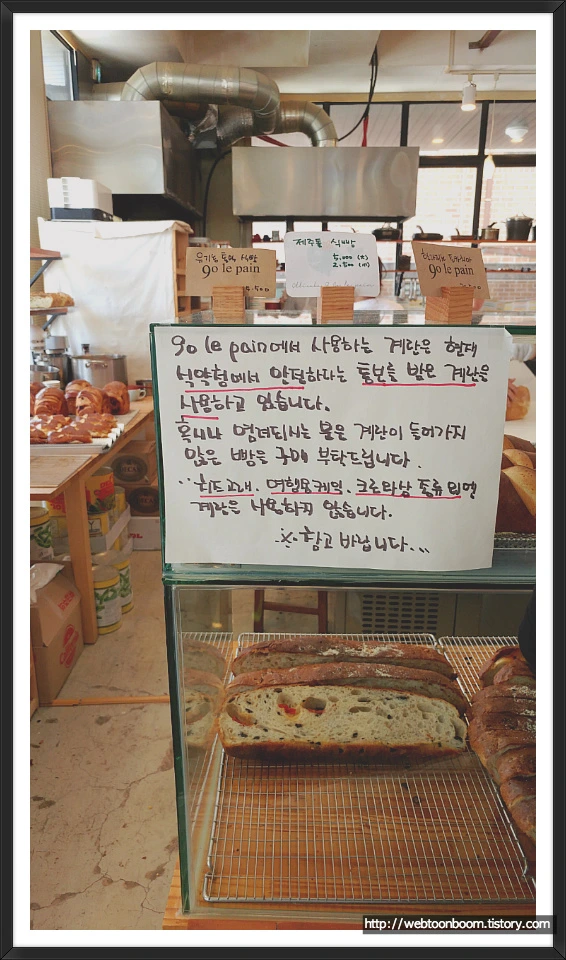 유기농 통밀 식빵
go le pain
제주돌 식빵
5,000 (大)
2,500 (小)
go le pain
go le pain에서 사용하는 계란은 현재
식약청에서 안전하다는 통보를 받은 계란을
사용하고 있습니다.
혹시나 염려되시는 분은 계란이 들어가지
않은 빵을 구매 부탁드립니다.
크로와상 종류 외엔
계란은 사용하지 않습니다.
※ 참고 바랍니다...
http://webtoonboom.tistory.com